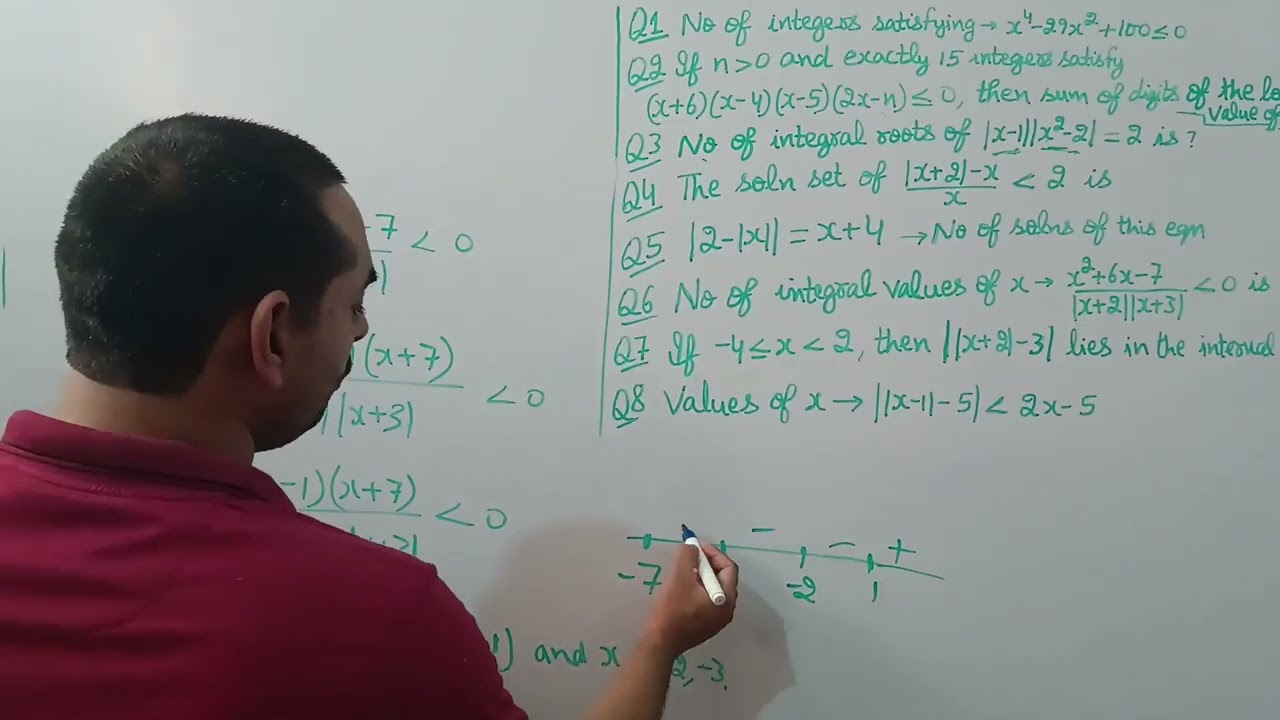 Q1 No of integers satisfying → x⁴-29x²+100≤0
Q2 If n>0 and exactly 15 integers satisfy
(x+6)(x-4)(x-5)(2x-n)≤0, then sum of digits of the
Value of
Q3 No of integral roots of |x-1||x²-2| = 2 is?
Q4 The soln set of |x+2|-x / x < 2 is
Q5 |2-|x|| = x+4 → No of solns of this eqn
Q6 No of integral values of x → x²+6x-7 / |x+2||x+3| <0 is
Q7 If -4≤x<2, then ||x+2|-3| lies in the interval
Q8 Values of x → ||x-1|-5| < 2x-5
-7 < 0
(x+7) < 0
|x+3|
-1)(x+7) < 0
- - +
-7 -2 1
1) and x 2,-3.